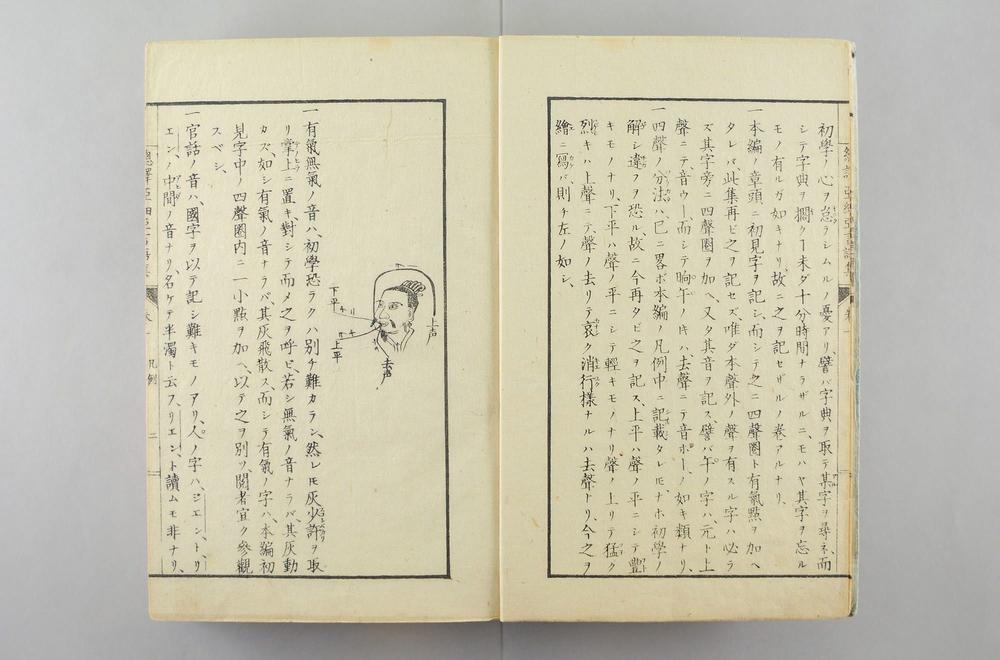 初學ノ心ヲ怠ラシムルノ憂アリ、譬バ字典ヲ取テ某字ヲ尋ネ、而
シテ字典ヲ擱クヿ未ダ十分時間ナラザルニ、モハヤ其字ヲ忘ル
モノ有ルガ如キナリ、故ニ之ヲ記セザルノ巻アルナリ、
一本編ノ章頭ニ初見字ヲ記シ、而シテ之ニ四聲圏ト有氣點ヲ加ヘ
タレバ此集再ビ之ヲ記セズ、唯ダ本聲外ノ聲ヲ有スル字ハ必ラ
ズ其字旁ニ四聲圏ヲ加ヘ、又タ其音ヲ記ス譬バ午ノ字ハ、元ト上
聲ニテ、音ウー、而シテ晌午ノ時ハ、去聲ニテ音ホー、ノ如キ類ナリ、
一四聲ノ分法ハ、已ニ畧ボ本編ノ凡例中ニ記載タレ𪜈、ナホ初學ノ
解シ違フヲ恐ル、故ニ今再タビ之ヲ記ス、上平ハ聲ノ平ニシテ豐
キモノナリ、下平ハ聲ノ平ニシテ輕キモノナリ聲ノ上リテ猛ク
烈キハ上聲ニテ、聲ノ去リテ哀ク消行樣ナルハ去聲ナリ、今之ヲ
繪ニ寫バ則チ左ノ如シ、
上声
下平
上平
去声
一有氣無氣ノ音ハ、初學恐ラクハ別チ難カラン、然レ𪜈灰少許ヲ取
リ掌上ニ置キ、對シテ而メ之ヲ呼ビ、若シ無氣ノ音ナラバ、其灰動
カズ、如シ有氣ノ音ナラバ、其灰飛散ス、而シテ有氣ノ字ハ、本編初
見字中ノ四聲圏内ニ一小點ヲ加ヘ、以テ之ヲ別ツ、閲者宜ク參觀
スベシ、
一官話ノ音ハ、國字ヲ以テ記シ難キモノアリ、人ノ字ハ、ジエント、リ
エン、ノ中間ノ音ナリ、名ケテ半濁ト云フ、リエント讀ムモ非ナリ、
凡例
二